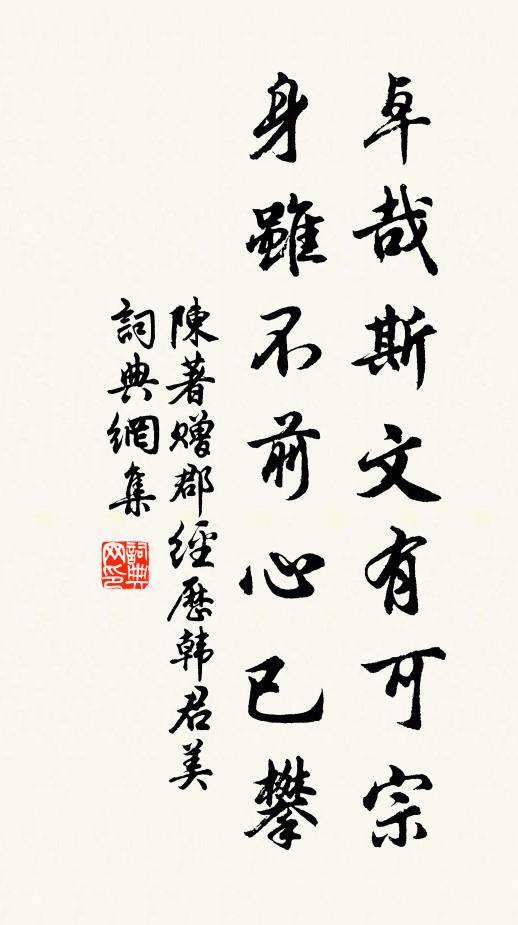 卓哉斯文有可宗
身雖不前心已攀
陳著贈郡經歷韩君美
詞典網集
詞典网印